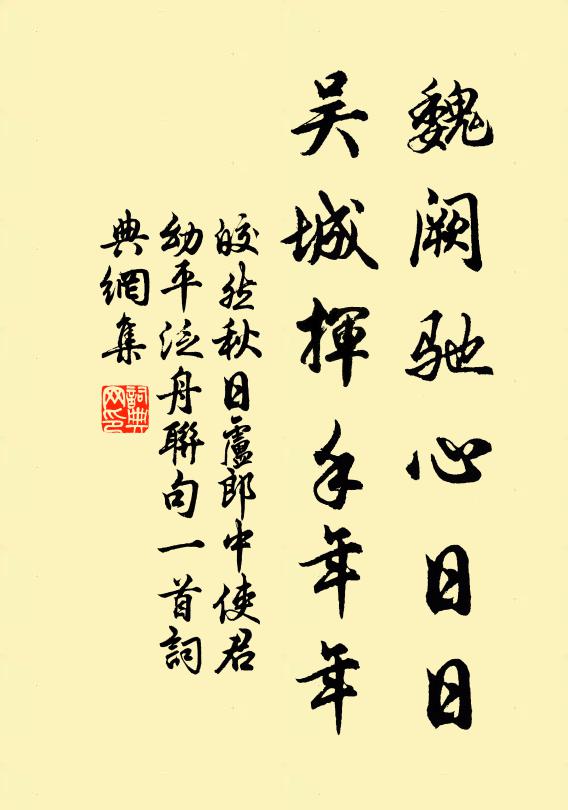 魏阙馳心日日
吴城揮手年年
皎然秋日盧郎中使君
幼平泛舟聯句一首詞
典網集
詞典网印